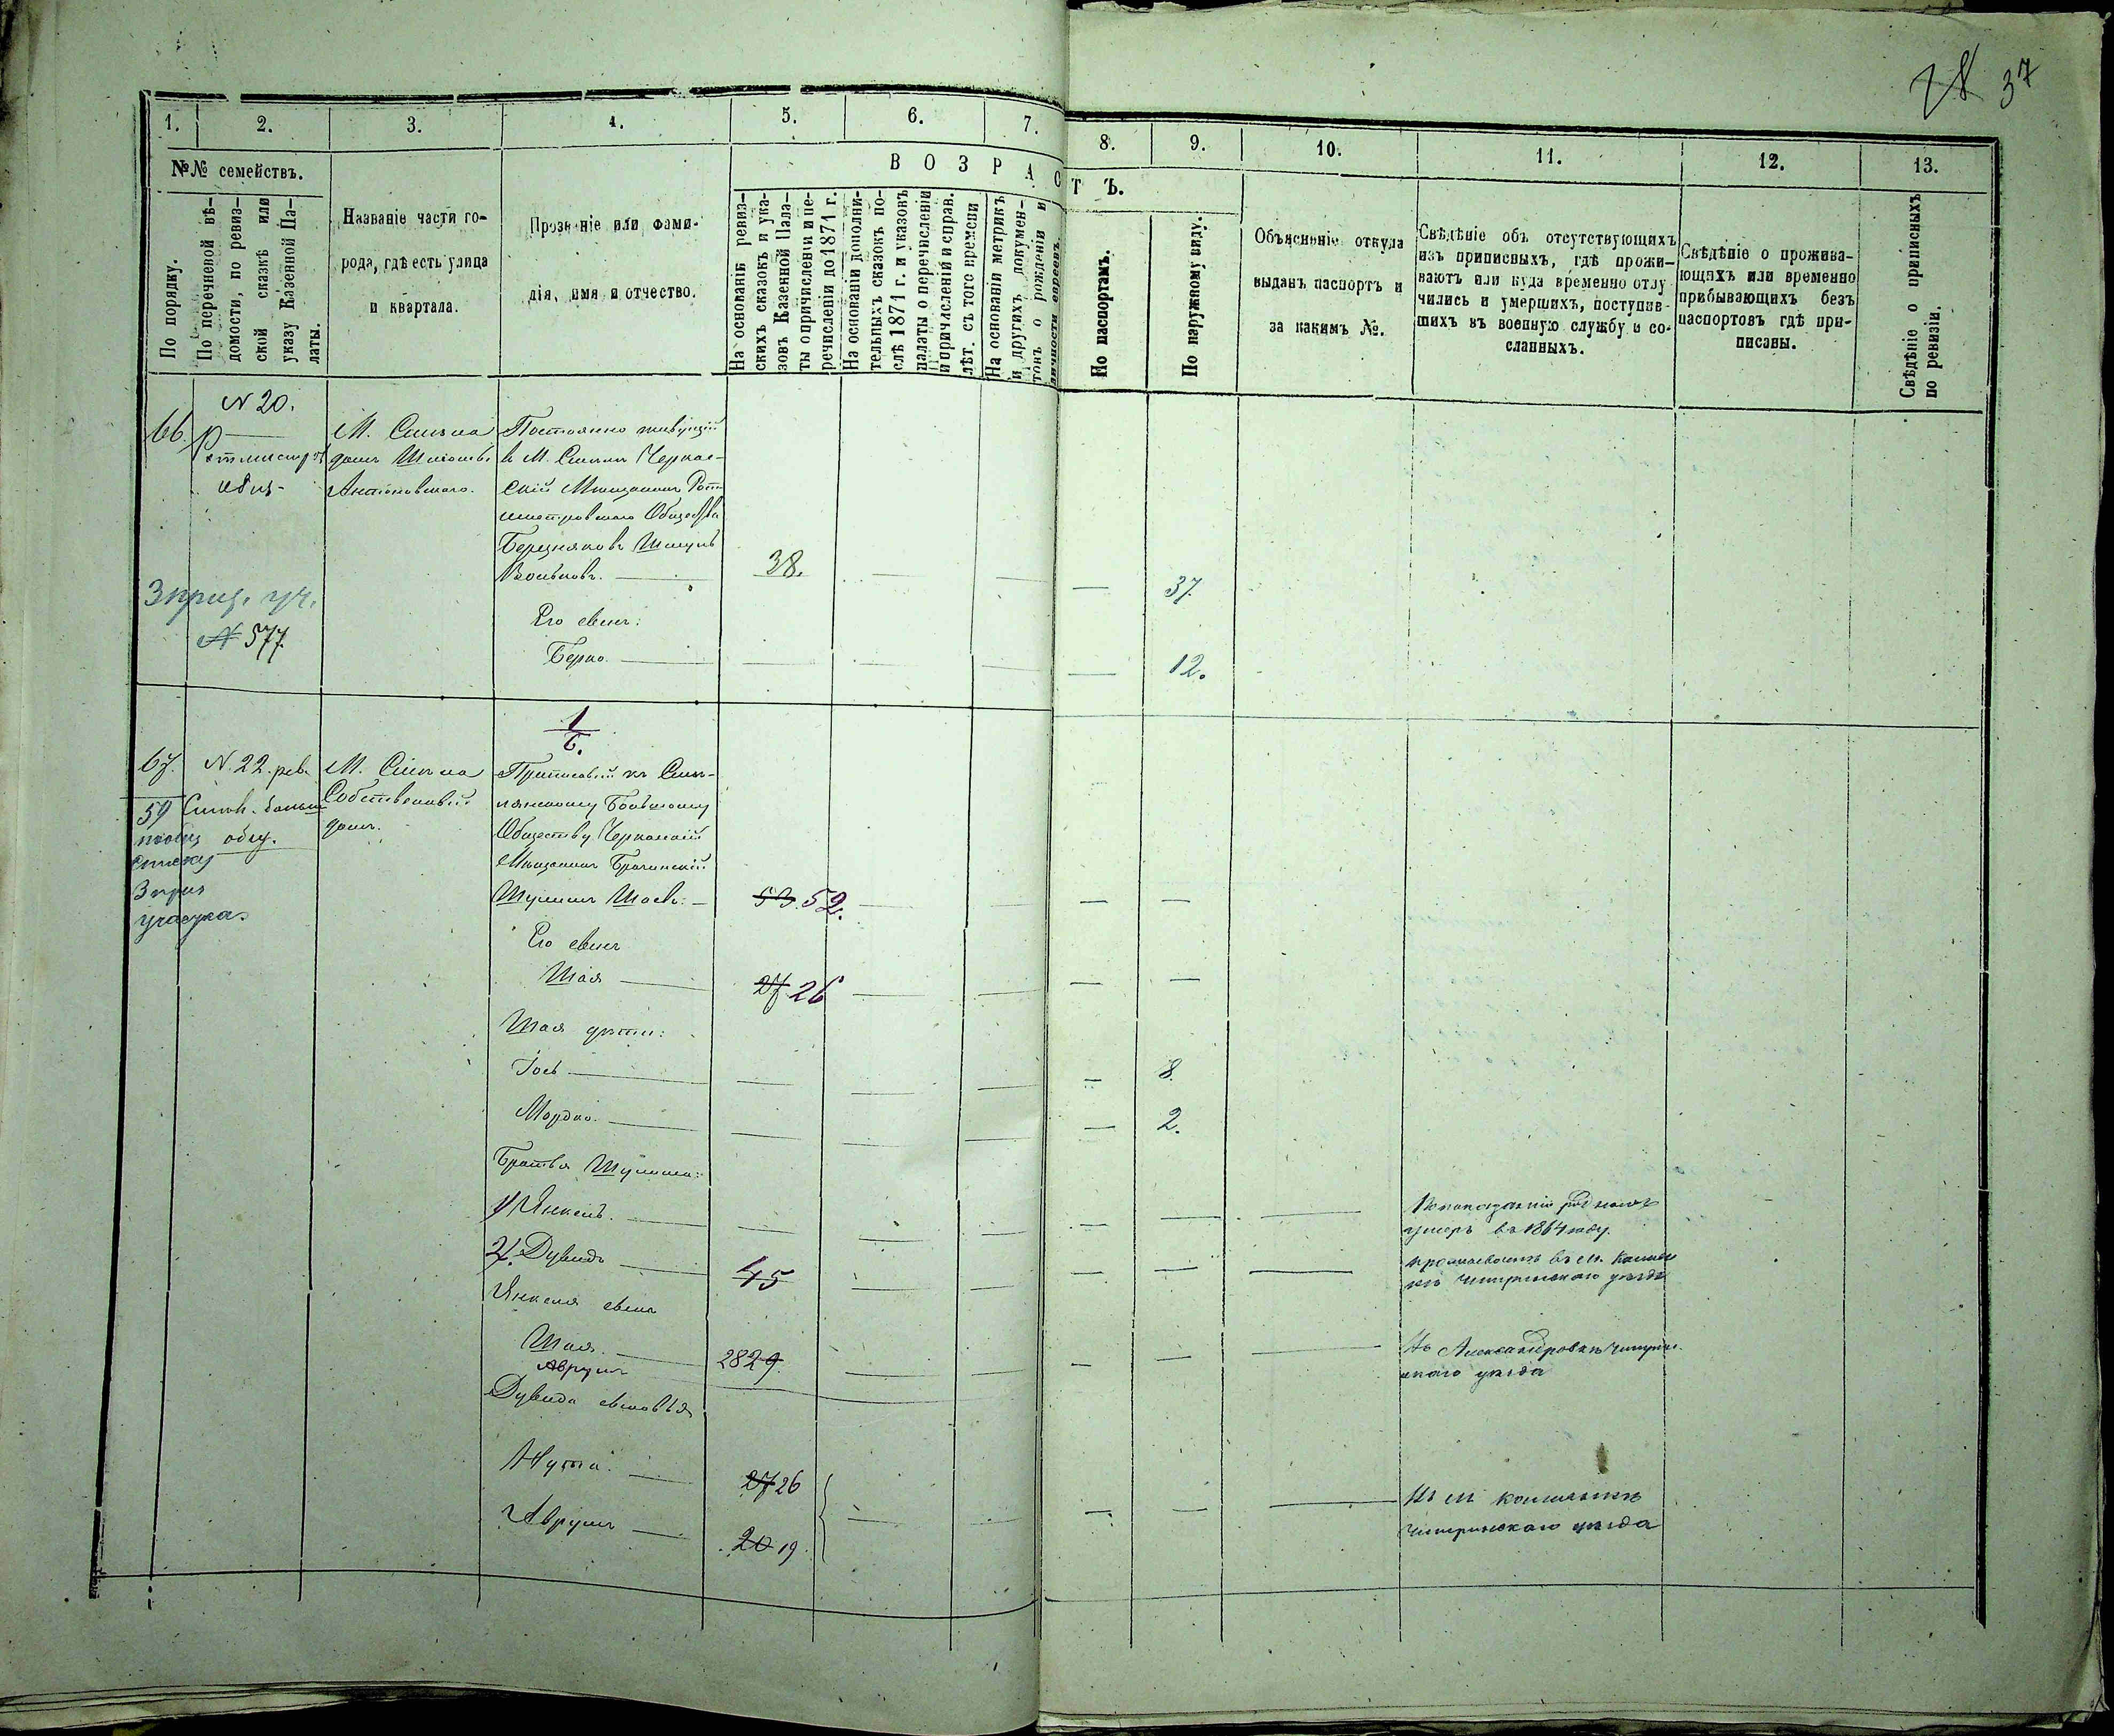 37
1. 2. 3. 4. 5. 6. 7. 8. 9. 10. 11. 12. 13.
№№ семействъ.
По порядку.
По перечневой вѣ-
домости, по ревиз-
ской сказкѣ или
указу Казенной Па-
латы.
Названіе части го-
рода, гдѣ есть улица
и квартала.
Прозваніе или фами-
лія, имя и отчество.
ВОЗРАСТЪ.
На основаніи ревиз-
скихъ сказокъ и ука-
зовъ Казенной Пала-
ты о причисленіи и пе-
речисленіи до 1871 г.
На основаніи дополни-
тельныхъ сказокъ по-
слѣ 1871 г. и указокъ
палаты о перечисленіи
и причисленій и справ.
лѣт. съ того времени
На основаніи метрикъ
и другихъ докумен-
товъ о рожденіи и
личности евреевъ.
По паспортамъ.
По наружному виду.
Объясненіе откуда
выданъ паспортъ и
за какимъ №.
Свѣдѣніе объ отсутствующихъ
изъ приписныхъ, гдѣ прожи-
ваютъ или куда временно отлу-
чились и умершихъ, поступив-
шихъ въ военную службу и со-
сланныхъ.
Свѣдѣніе о прожива-
ющихъ или временно
прибывающихъ безъ
паспортовъ гдѣ при-
писаны.
Свѣдѣніе о приписныхъ
по ревизіи.
N 20.
66.
М. Смѣла
домъ
Антоновскаго.
Постоянно живущій
в М. Смѣлѣ Черкас-
скій Мѣщанинъ Рот-
мистровскаго Общества
Березняковъ Шмуль
Вольковъ. — 38. — — — 37.
3 приз. уч.
N 577.
Его сынъ:
Берко. — — — — — 12.
1/6.
67.
N. 22. рев.
М. Смѣла
Собственный
домъ.
59
общ.
списку
3 приз
участка.
Приписный къ Смѣ-
лянскому Большому
Обществу Черкаскій
Мѣщанинъ
Шулимъ Шаевъ: — 53. 52. — — — —
Его сынъ
Шая — 27 26 — — — —
Шая дѣти:
Іось — — — — — 8.
Мордко. — — — — — 2.
Братья Шулима:
1/ Янкель. — — — — — — —
умеръ въ 1864 году.
2/. Дувидъ — 45 — — — — —
проживаетъ въ м.
Чигиринскаго уѣзда
Янкеля сынъ
Шая. — 28 29. — — — — —
Аврумъ
Въ Александровкѣ Чигирин-
скаго уѣзда
Дувида сыновья
Нута. — 27 26
Аврумъ — 20 19 — — — — —
Въ м
Чигиринскаго уѣзда